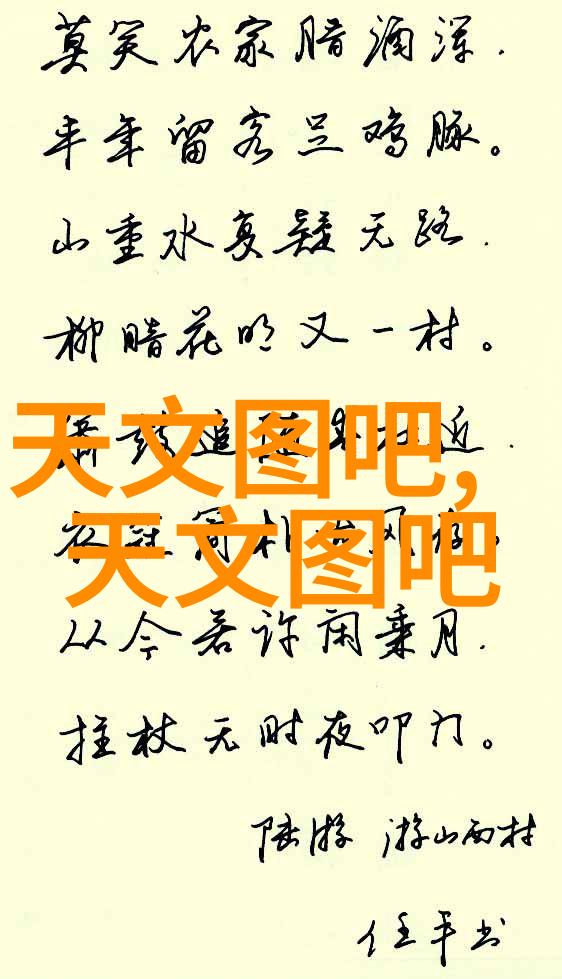 莫笑农家腊酒浑.
丰年留客足鸡豚。
山重水复疑无路.
柳暗花明又一村。
箫鼓追随春社近.
天文图吧,
衣冠简朴古风存。
天文图吧
从今若许闲乘月.
拄杖无时夜叩门。
陆游 游山西村
任平书